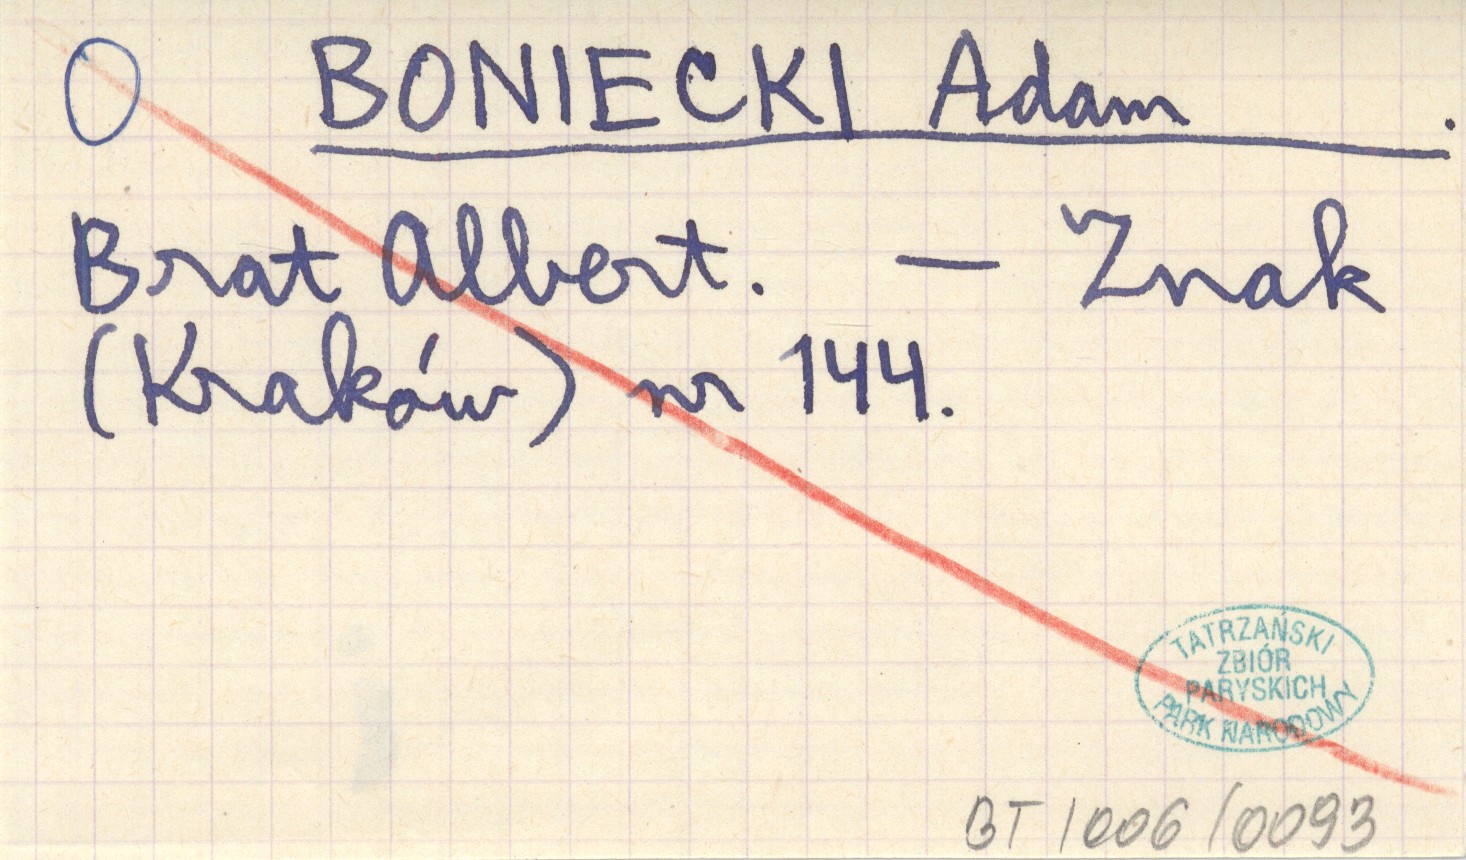 O BONIECKI Adam .
Brat Albert. — Znak
(Kraków) nr 144.
TATRZAŃSKI
ZBIÓR
PARYSKICH
PARK NARODOWY
BT/006/0093